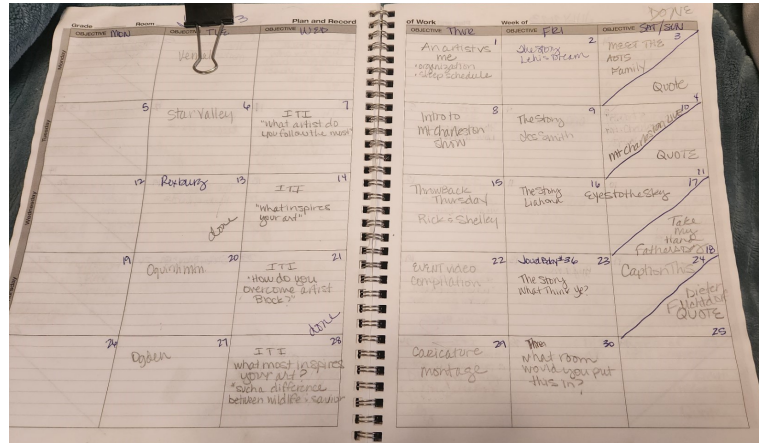 Grade
Room
3
Plan and Record
of Work
Week of
DONE
OBJECTIVE MON
OBJECTIVE TUE
OBJECTIVE WED
OBJECTIVE THUR
OBJECTIVE FRI
OBJECTIVE SAT/SUN
Monday
1
An artist vs
me
• organization
• sleep schedule
2
The Story
Lehi's Dream
3
MEET THE
ADTS
Family
Quote
4
Tuesday
5
Star Valley
6
ITI
7
"What artist do
you follow the most"
Intro to
8
Mt Charleston
Show
The Story
9
Joe Smith
Mt Charleston
QUOTE
11
Wednesday
12
Roxburg
13
done
14
ITI
"What inspires
your art"
15
Throwback
Thursday
Rick & Shelley
The Story
16
Liahona
Eyes to the Sky
17
Take
my
Hand
18
19
20
Oquirrh mtn
21
ITI
"How do you
overcome artist
Block?"
done
22
Event video
compilation
23
The Story
What Think Ye?
24
Caption This
Dieter
QUOTE
25
26
27
Ogden
28
ITI
what most inspires
your art?
"such a difference
between wildlife & savior
29
Caricature
montage
30
what room
would you put
this in?